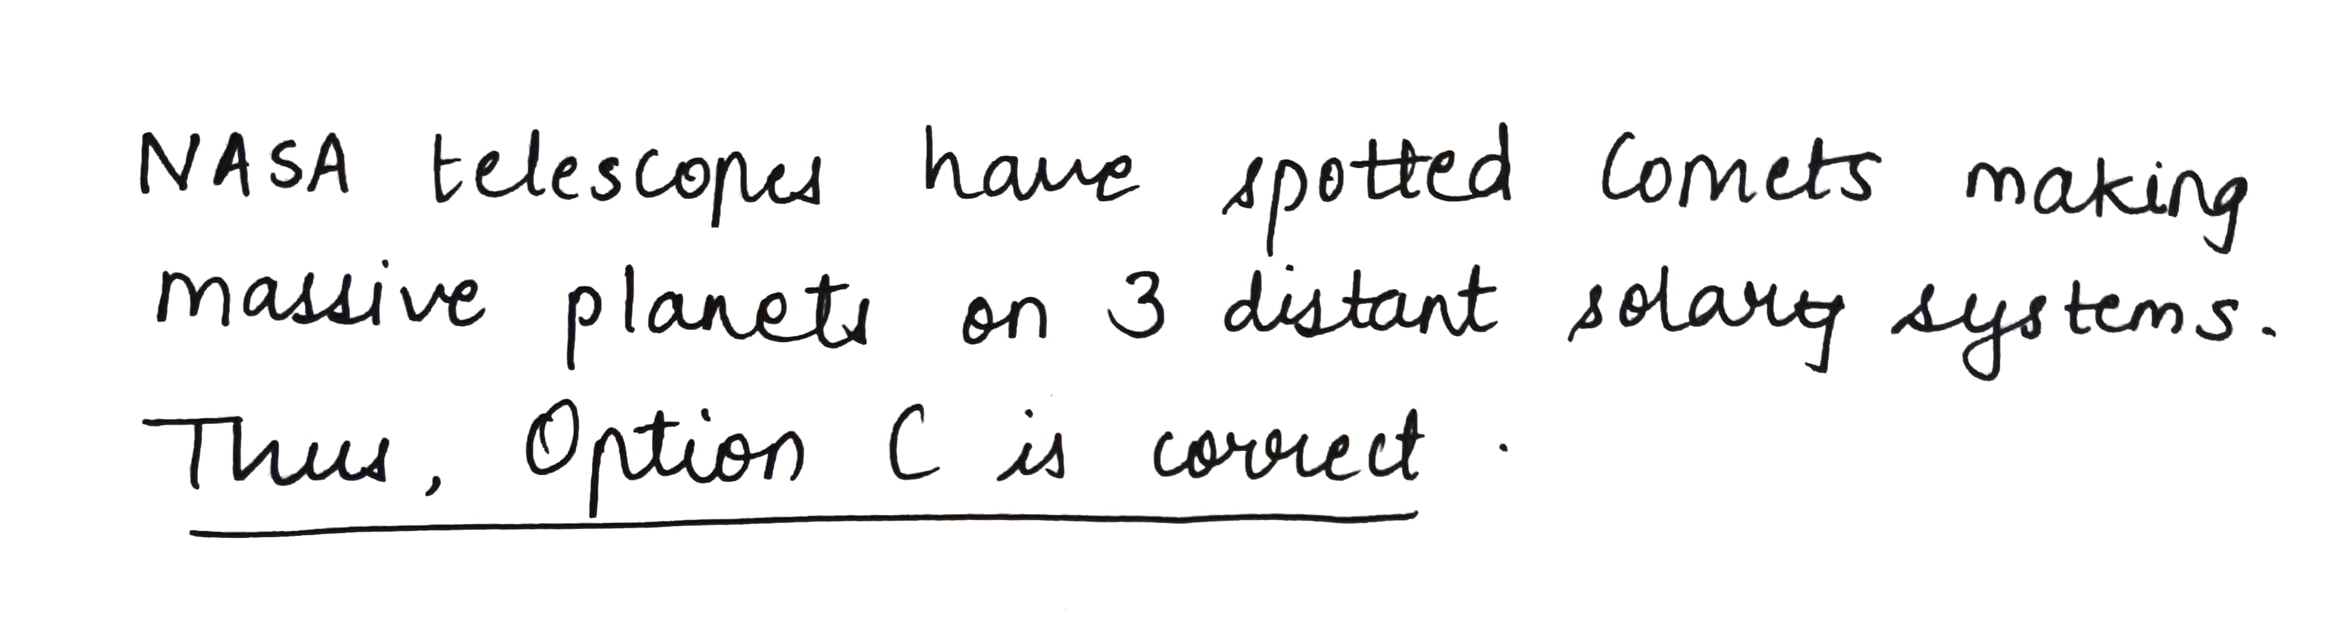 NASA telescopes have spotted Comets making
massive planets on 3 distant solary systems.
Thus, Option C is correct.